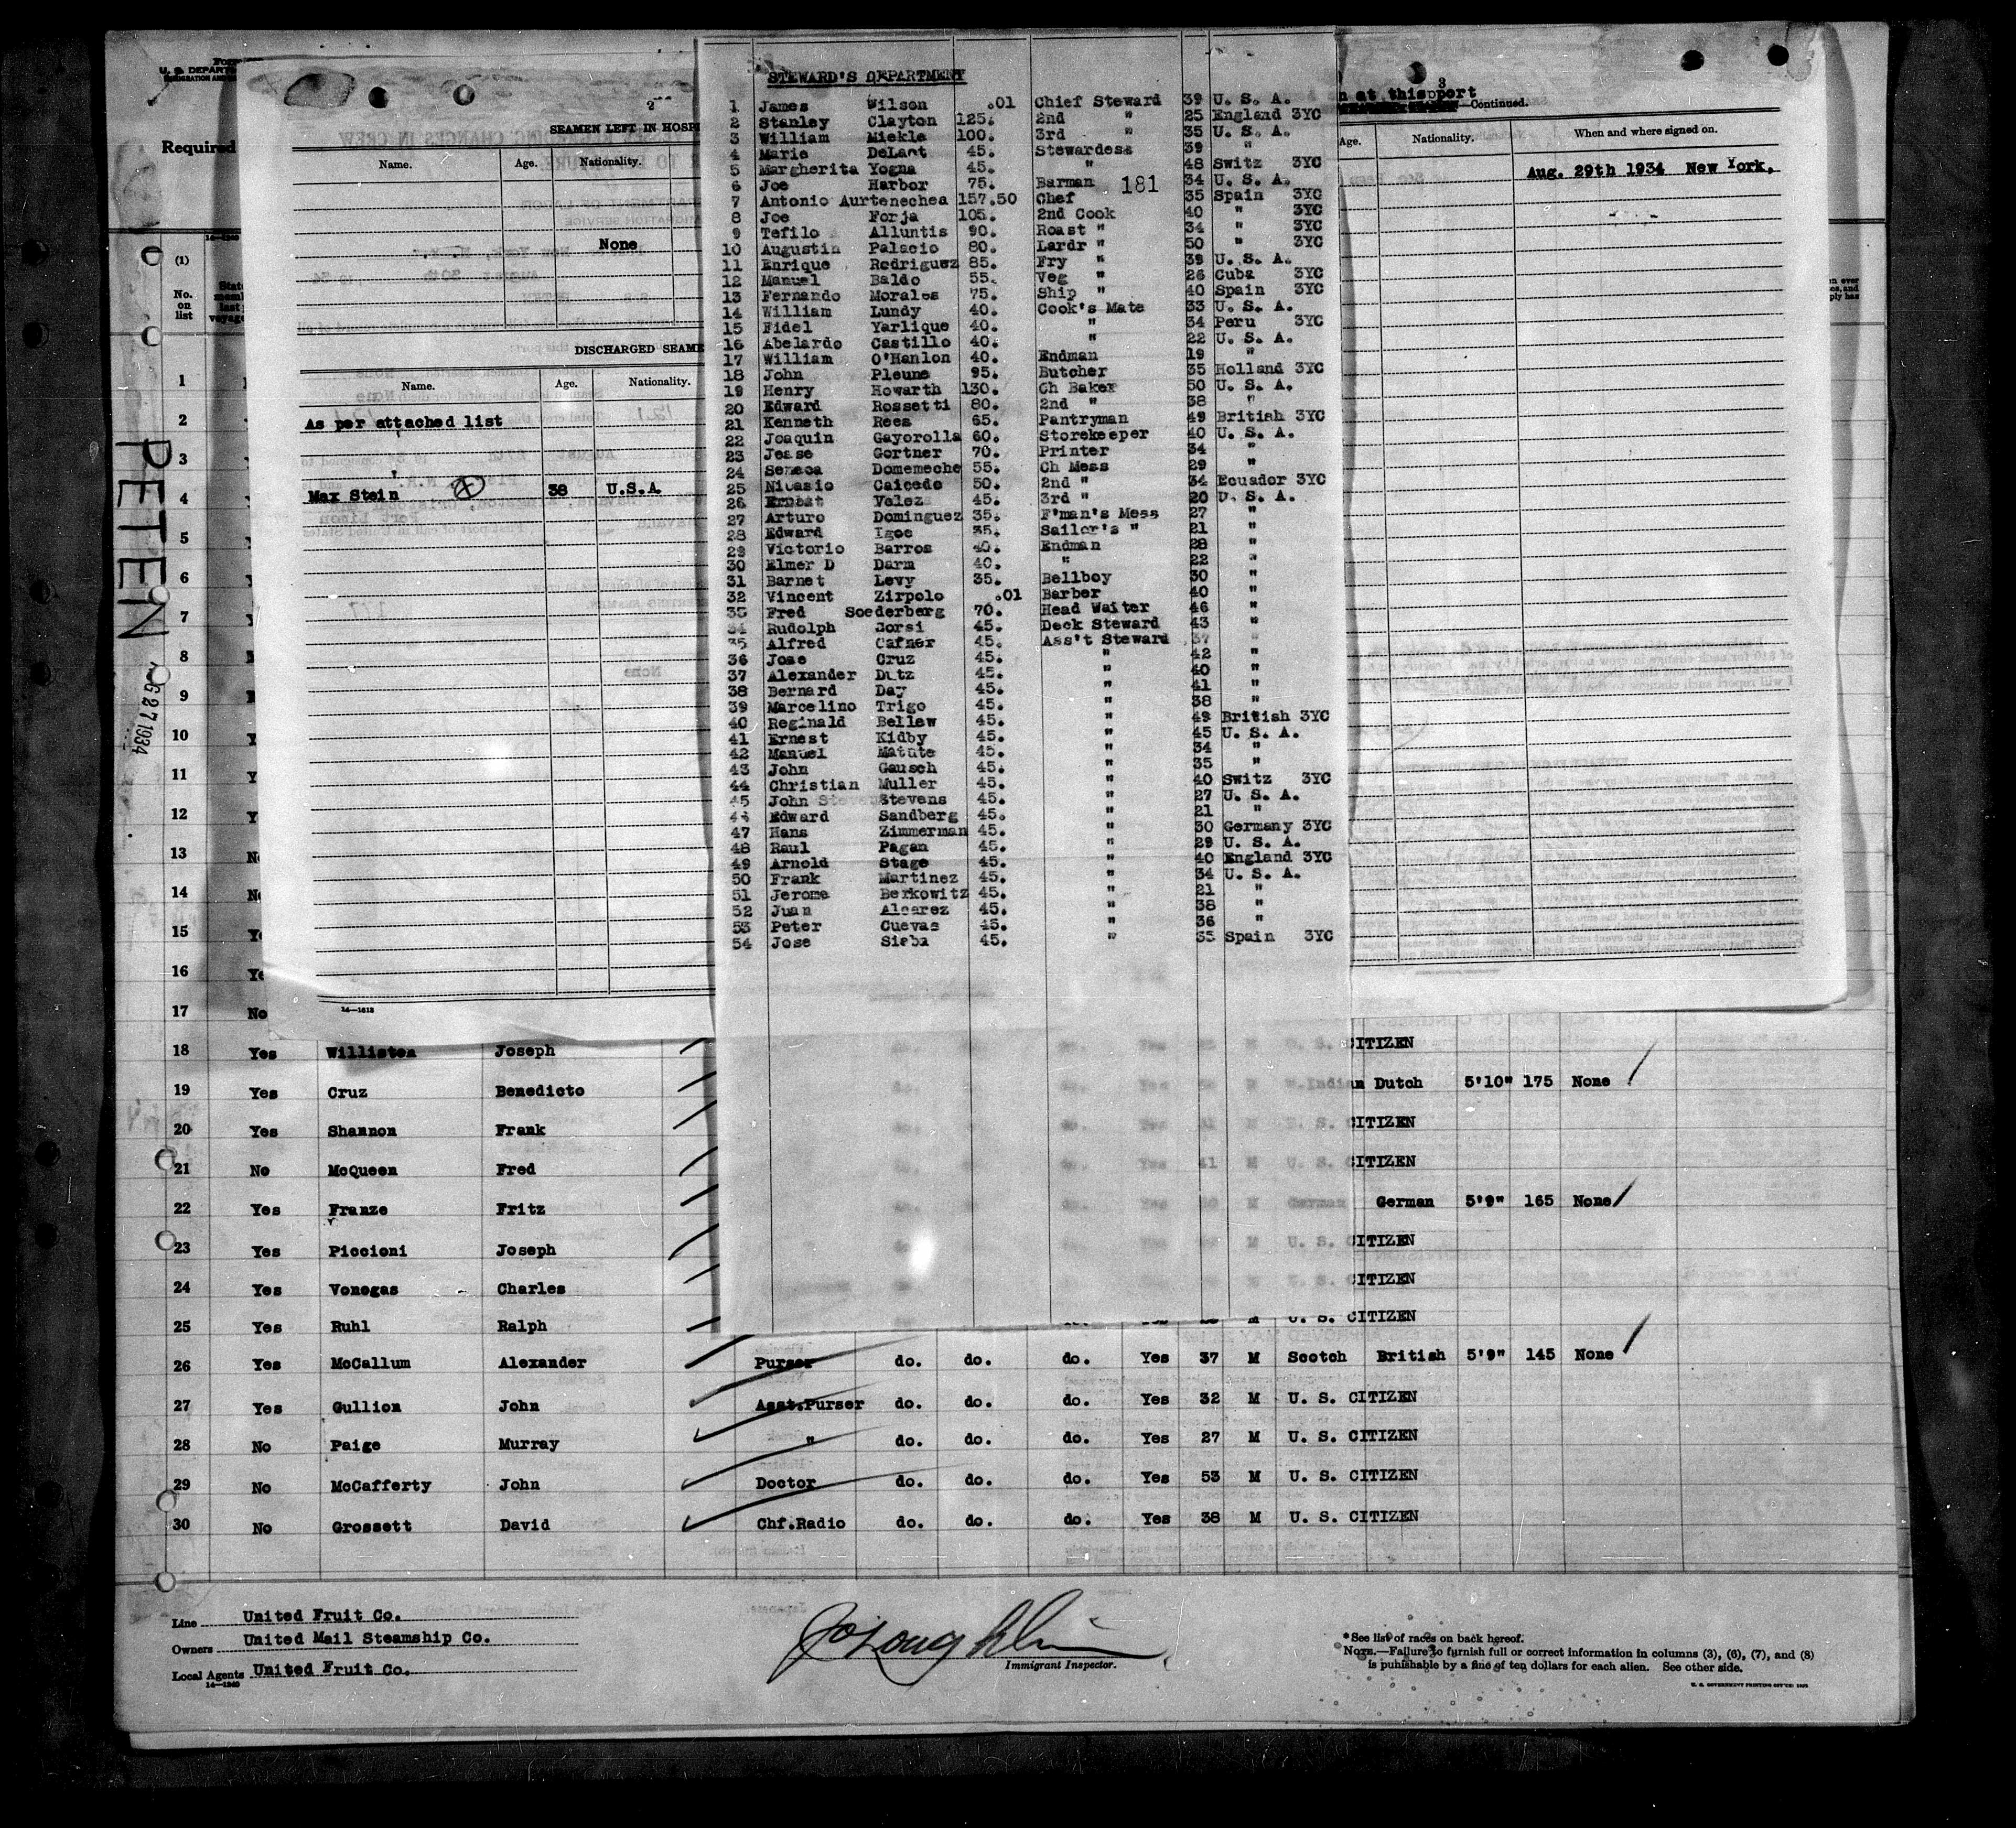 Form
U. S. DEPART
IMMIGRATION AND
Required
14—1240
(1)
No.
on
list
PETEN
271934
2
SEAMEN LEFT IN HOSPI
Name. Age. Nationality.
None
DISCHARGED SEAME
Name. Age. Nationality.
As per attached list
Max Stein 38 U.S.A.
14—1613
STEWARD'S DEPARTMENT
1 James Wilson .01 Chief Steward 39 U. S. A.
2 Stanley Clayton 125. 2nd " 25 England 3YC
3 William Miekle 100. 3rd " 35 U. S. A.
4 Marie DeLant 45. Stewardess 39 "
5 Margherita Yogna 45. " 48 Switz 3YC
6 Joe Harbor 75. Barman 181 34 U. S. A.
7 Antonio Aurtenechea 157.50 Chef 35 Spain 3YC
8 Joe Forja 105. 2nd Cook 40 " 3YC
9 Tefilo Alluntis 90. Roast " 34 " 3YC
10 Augustin Palacio 80. Lardr " 50 " 3YC
11 Enrique Rodriguez 85. Fry " 39 U. S. A.
12 Manuel Baldo 55. Veg " 26 Cuba 3YC
13 Fernando Morales 75. Ship " 40 Spain 3YC
14 William Lundy 40. Cook's Mate 33 U. S. A.
15 Fidel Yarlique 40. " 34 Peru 3YC
16 Abelardo Castillo 40. " 22 U. S. A.
17 William O'Hanlon 40. Endman 19 "
18 John Pleune 95. Butcher 35 Holland 3YC
19 Henry Howarth 130. Ch Baker 50 U. S. A.
20 Edward Rossetti 80. 2nd " 38 "
21 Kenneth Rees 65. Pantryman 49 British 3YC
22 Joaquin Gayorolla 60. Storekeeper 40 U. S. A.
23 Jesse Gortner 70. Printer 34 "
24 Seneca Domemeche 55. Ch Mess 29 "
25 Nicasio Caicedo 50. 2nd " 34 Ecuador 3YC
26 Ernest Velez 45. 3rd " 20 U. S. A.
27 Arturo Dominguez 35. F'man's Mess 27 "
28 Edward Igoe 35. Sailor's " 21 "
29 Victorio Barros 40. Endman 28 "
30 Elmer D Darm 40. " 22 "
31 Barnet Levy 35. Bellboy 30 "
32 Vincent Zirpolo .01 Barber 40 "
33 Fred Soederberg 70. Head Waiter 46 "
34 Rudolph Gorsi 45. Deck Steward 43 "
35 Alfred Cafner 45. Ass't Steward 37 "
36 Jose Cruz 45. " 42 "
37 Alexander Dutz 45. " 40 "
38 Bernard Day 45. " 41 "
39 Marcelino Trigo 45. " 38 "
40 Reginald Bellew 45. " 49 British 3YC
41 Ernest Kidby 45. " 45 U. S. A.
42 Manuel Matute 45. " 34 "
43 John Gausch 45. " 35 "
44 Christian Muller 45. " 40 Switz 3YC
45 John Stevens 45. " 27 U. S. A.
46 Edward Sandberg 45. " 21 "
47 Hans Zimmerman 45. " 30 Germany 3YC
48 Raul Pagan 45. " 29 U. S. A.
49 Arnold Stage 45. " 40 England 3YC
50 Frank Martinez 45. " 34 U. S. A.
51 Jerome Berkowitz 45. " 21 "
52 Juan Alvarez 45. " 38 "
53 Peter Cuevas 45. " 36 "
54 Jose Sieba 45. " 35 Spain 3YC
3
n at this port
—Continued.
Age. Nationality. When and where signed on.
Aug. 29th 1934 New York,
1
2
3
4
5
6
7
8
9
10
11
12
13
14
15
16
17 No
18 Yes Williston Joseph CITIZEN
19 Yes Cruz Benedicto Dutch 5'10" 175 None
20 Yes Shannon Frank CITIZEN
21 No McQueen Fred 41 U. S. CITIZEN
22 Yes Franze Fritz German German 5'9" 165 None
23 Yes Piccioni Joseph M U. S. CITIZEN
24 Yes Vonegas Charles CITIZEN
25 Yes Ruhl Ralph M U. S. CITIZEN
26 Yes McCallum Alexander Purser do. do. do. Yes 37 M Scotch British 5'9" 145 None
27 Yes Gullion John Asst.Purser do. do. do. Yes 32 M U. S. CITIZEN
28 No Paige Murray " do. do. do. Yes 27 M U. S. CITIZEN
29 No McCafferty John Doctor do. do. do. Yes 53 M U. S. CITIZEN
30 No Grossett David Chf.Radio do. do. do. Yes 38 M U. S. CITIZEN
Line United Fruit Co.
Owners United Mail Steamship Co.
Local Agents United Fruit Co.
14—1240
Immigrant Inspector.
*See list of races on back hereof.
NOTE.—Failure to furnish full or correct information in columns (3), (6), (7), and (8)
is punishable by a fine of ten dollars for each alien. See other side.